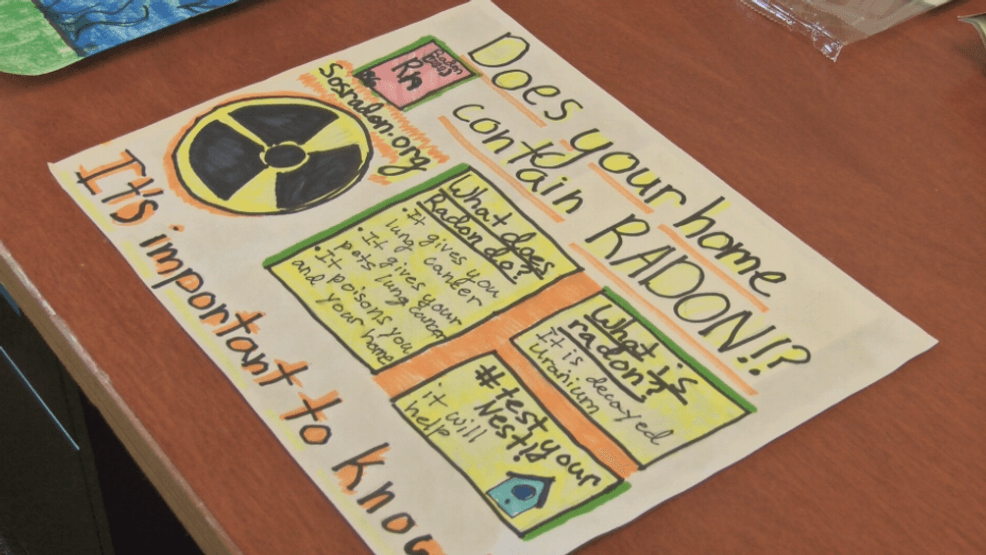 Does your home
contain RADON!?
Radon
Rn
86
Sosradon.org
What does
Radon do?
• It gives you
lung cancer
• It gives your
pets lung cancer
• It poisons you
and your home
What is
radon?
It is decayed
uranium
#test your
Nest!
it will
help
It's important to know